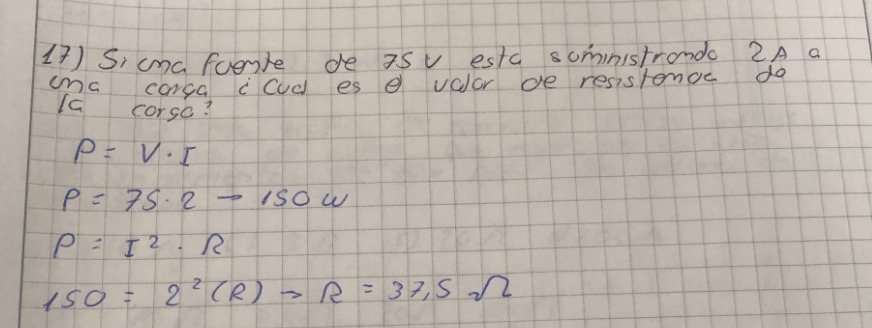 17) Si una fuente de 75 V esta suministrando 2A a
una carga ¿Cual es el valor de resistencia de
la carga?
P = V · I
P = 75 · 2 → 150 W
P = I² · R
150 = 2² (R) → R = 37,5 Ω